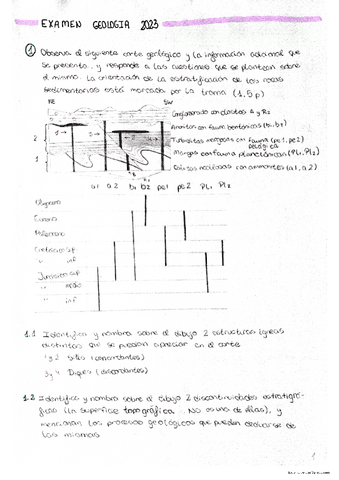 EXAMEN GEOLOGIA 2023
① Observa el siguiente corte geológico y la información adicional que
se presenta, y responde a las cuestiones que se plantean sobre
el mismo. La orientación de la estratificación de las rocas
sedimentarias está marcada por la trama (1,5 p)
NE SW
Conglomerado con clastos A y R2
Areniscas con fauna bentónica (b1, b2)
Turbiditas margosas con fauna (pe1, pe2)
pelágica
Margas con fauna planctónica (PL1, PL2)
Calizas nodulosas con ammonites (a1, a2)
2
1
a1 a2 b1 b2 pe1 pe2 PL1 PL2
Oligoceno
Eoceno
Paleoceno
Cretácico sup
" inf
Jurásico sup
" medio
" inf
1.1 Identifica y nombra sobre el dibujo 2 estructuras ígneas
distintas que se puedan apreciar en el corte
1 y 2 Sills (concordantes)
3 y 4 Diques (discordantes)
1.2 Identifica y nombra sobre el dibujo 2 discontinuidades estratigrá-
ficas (la superficie topográfica NO es una de ellas), y
mencionan los procesos geológicos que pueden deducirse de
las mismas
1